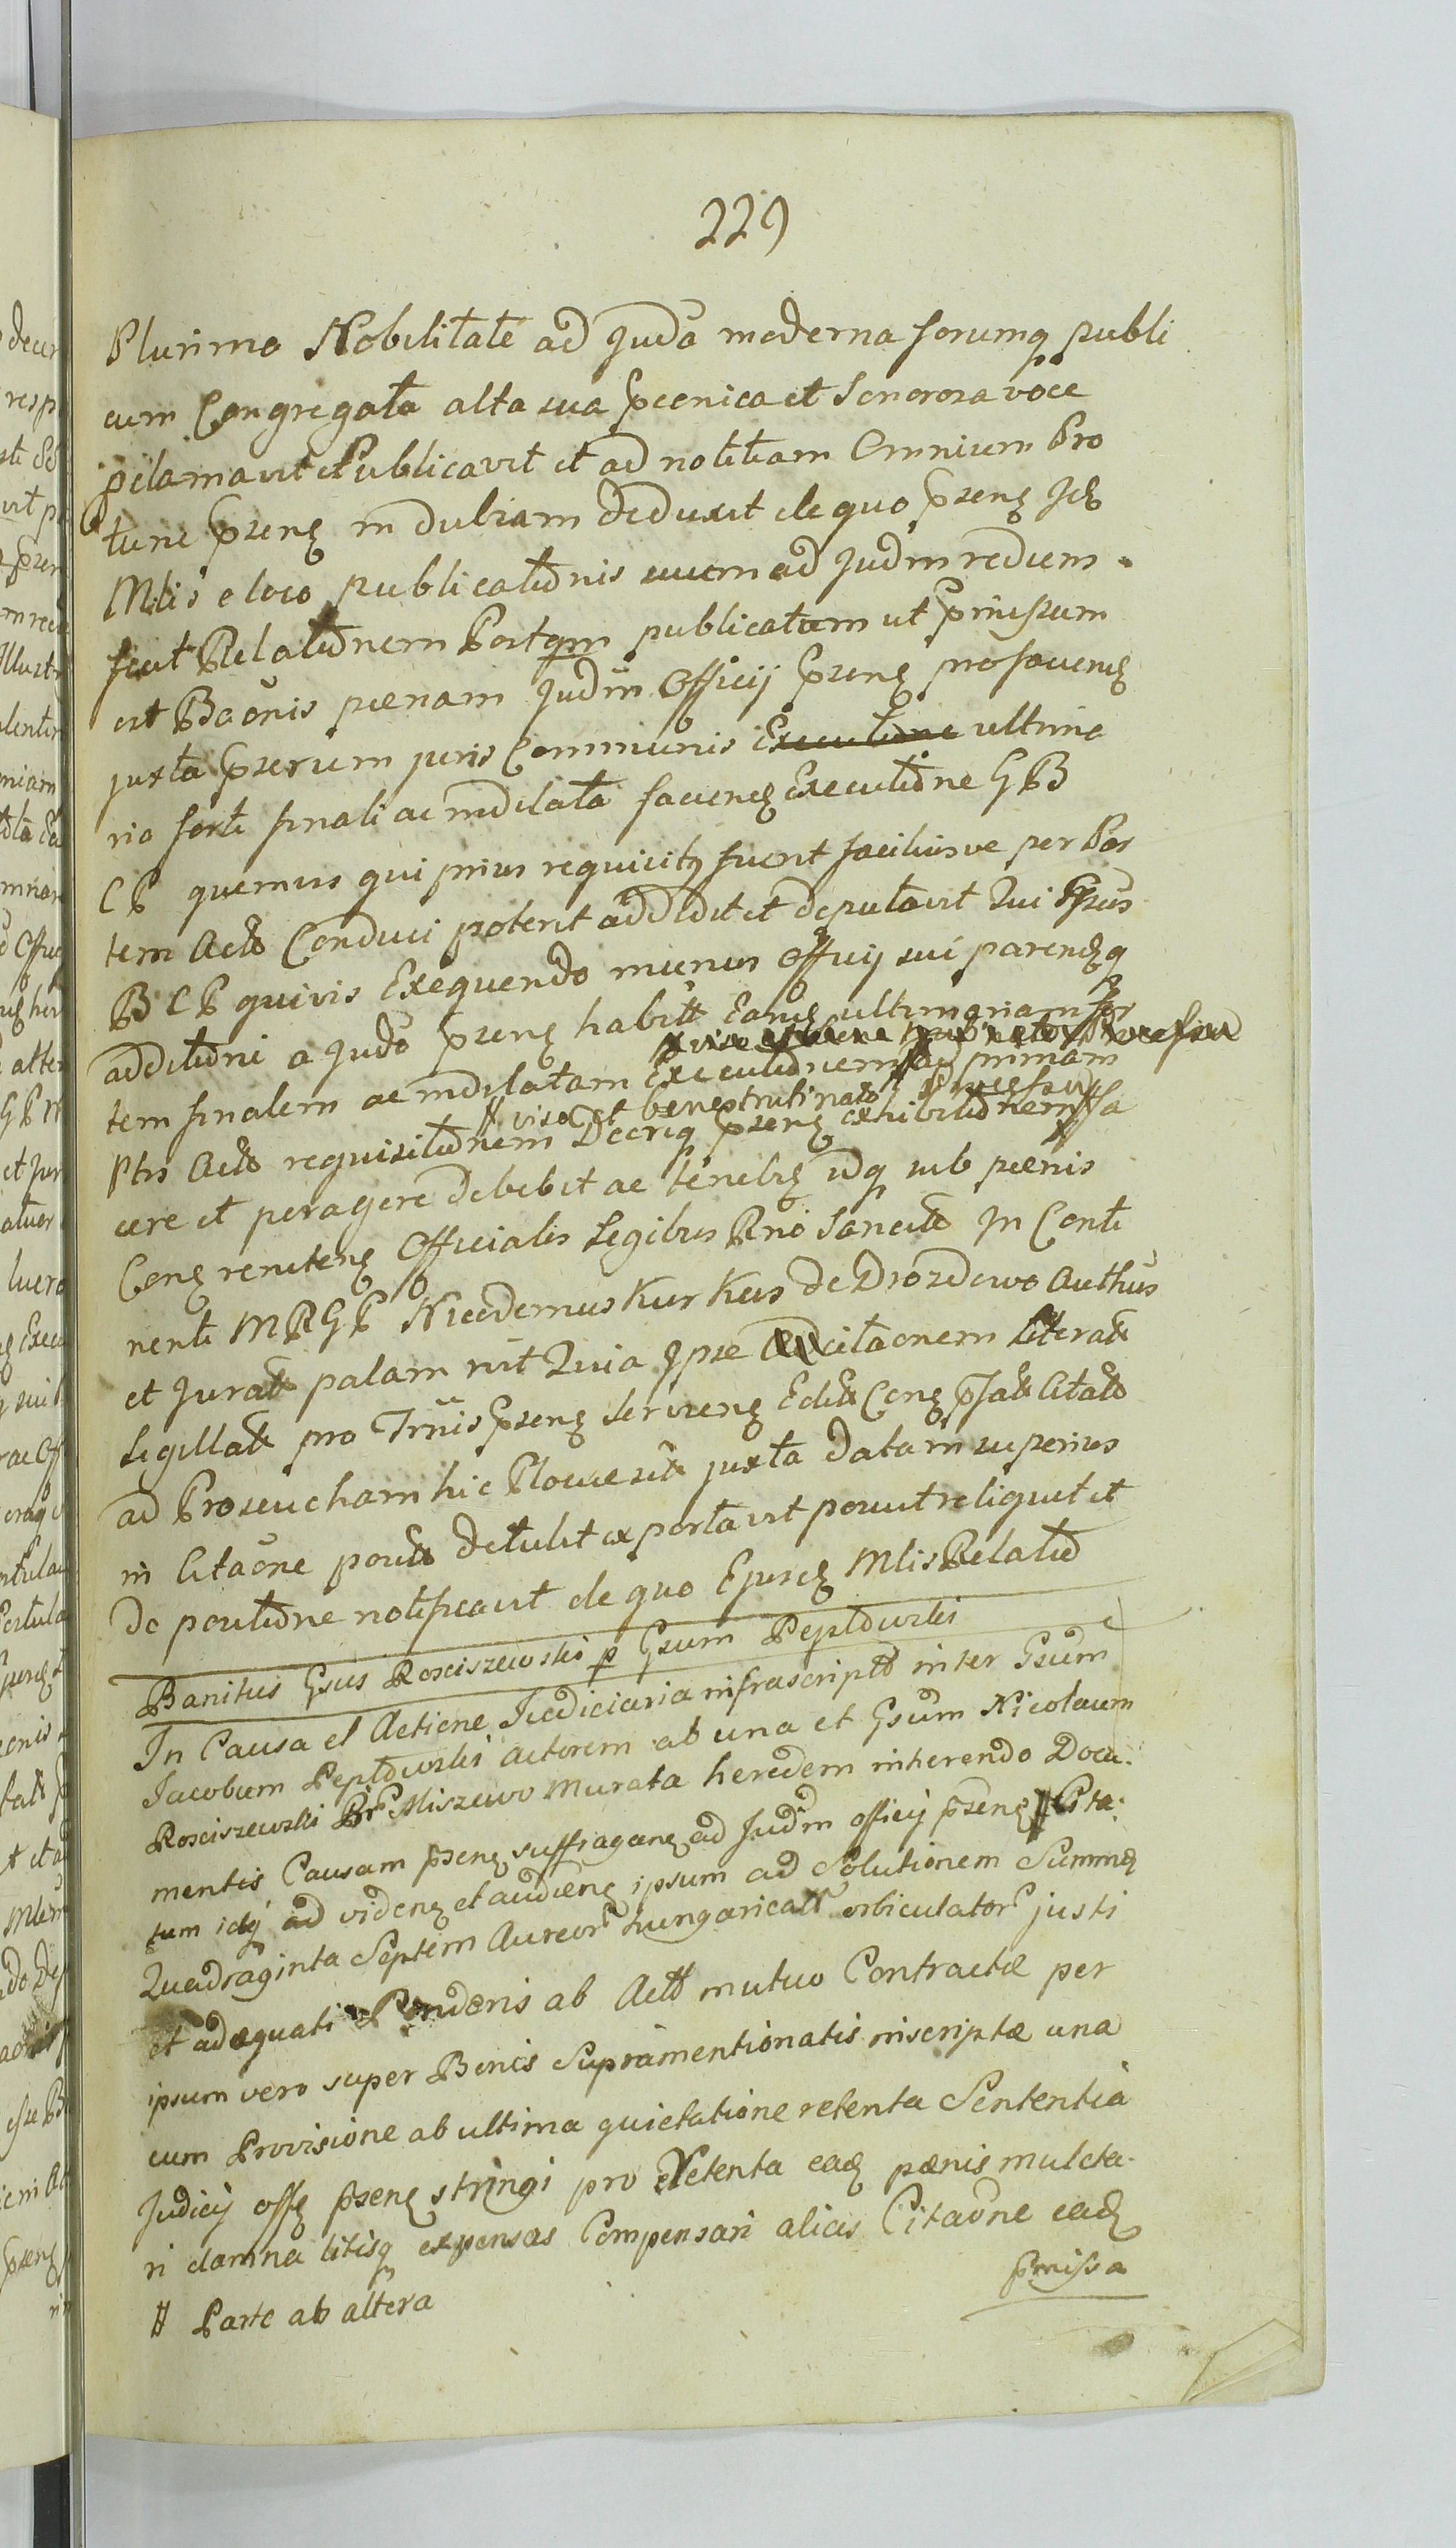 229
Plurimo Nobilitate ad Juda moderna forumq publi
cum Congregata alta sua preonica et Sonorosa voce
pclamavit et Publicavit et ad notitiam Omnium Pro
tunc prseng in dubiam deduxit de quo prseng Jcl
Mlis e loco publicationis suum ad Judm rediens
fecit Relationem Postqm publicatam ut prmissum
est Baonis pœnam Judm Officij prseng pro facieng
juxta prserum juris Communis Executione ultima
ria forti finali ac indilata facieng Executione GB
CP quemvis qui prius requisity fuerit faciliusve per Par
tem Act Conduci poterit addidit et deputavit Qui Gsus
BCP quivis Exequendo munus Officij sui parendq
additioni a Judo prseng habitt Eandg ultimariam for
tem finalem ac indilatam Executionem ad primam
# viso et bene trutinato Processu
Ptis Act requisitionem Decreq prseng exhibitionem # fa
cere et peragere debebit ac tenebg idq sub pœnis
Cong reniteng Officialis Legibus Rni Sancit In Conti
nenti MRGP Nicodemus Kurkus de Drozdowo Authus
et Jurat palam rit Quia Ipse Citaonem Literat
Sigillat pro Trnis prseng Servieng Edit Cong psat Citat
ad Proseucham hic Plocie sit juxta datam superius
in Citaone posit detulit exportavit posuit reliquit et
de positione notificavit de quo Ejusdg Mlis Relatio
Banitus Gsus Rosciszewski p Gsum Peplowski
In Causa et Actione Judiciaria infrascript inter Gsum
Jacobum Peplowski actorem ab una et Gsum Nicolaum
Rosciszewski Br Miszewo Murata heredem inherendo Docu.
mentis Causam prseng suffraganeg ad Judm officij prseng # Cita.
tum idq ad videng et audieng ipsum ad Solutionem Summæ
Quadraginta Septem Aureor hungaricall orbiculator justi
et adæquati Ponderis ab Act mutuo Contractæ per
ipsum vero super Bonis Supramentionatis inscriptæ una
cum Provisione ab ultima quietatione retenta Sententia
Judicij offg prseng stringi pro retenta eadg pœnis mulcta.
ri damna litisq expensas Compensari alias Citaone eadg
prmissa
# Parte ab altera